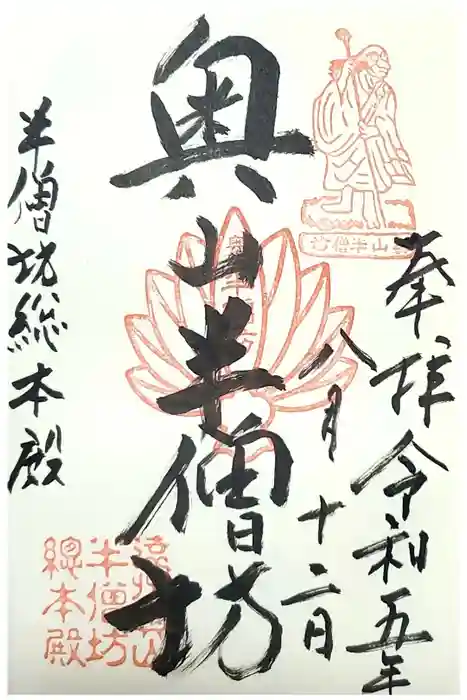 奉拝 令和五年
八月十二日
奥山半僧坊
半僧坊総本殿
奥山半僧坊
半僧坊
総本殿